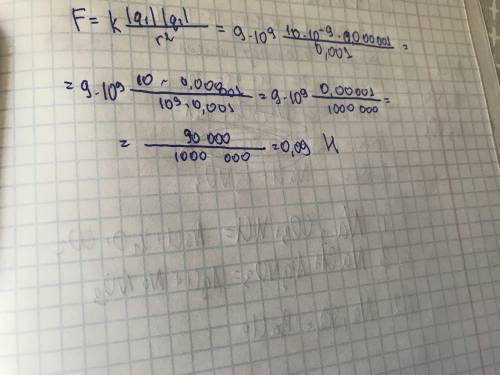 F = k |q₁| |q₂| / r² = 9·10⁹ 10·10⁻⁹·0,000001 / 0,001 =
= 9·10⁹ 10 · 0,000001 / 10⁹·0,001 = 9·10⁹ 0,00001 / 1000 000 =
= 90 000 / 1000 000 = 0,09 Н